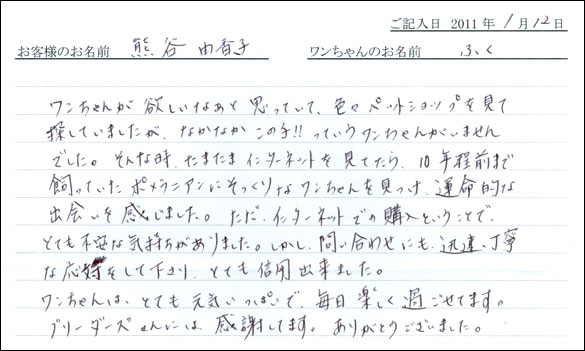 ご記入日 2011 年 1 月 12 日
お客様のお名前 熊谷 由香子 ワンちゃんのお名前 ふく
ワンちゃんが 欲しいなあと 思っていて、色々ペットショップを見て
探していましたが、なかなか この子!! っていうワンちゃんがいません
でした。そんな時、たまたまインターネットを見てたら、10年程前まで
飼っていた ポメラニアンにそっくりなワンちゃんを見つけ、運命的な
出会いを感じました。ただ、インターネットでの購入ということで、
とても不安な気持ちがありました。しかし、問い合わせにも、迅速、丁寧
な応対をして下さり、とても信用出来ました。
ワンちゃんは、とても元気いっぱいで、毎日楽しく過ごせてます。
ブリーダーズさんには、感謝してます。ありがとうございました。